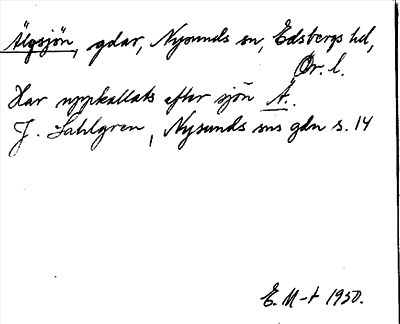 Älgsjön, gdar, Nysunds sn, Edsbergs hd,
Ör. l.
Har uppkallats efter sjön Ä.
J. Sahlgren, Nysunds sns gdn s. 14
E. M-t 1950.